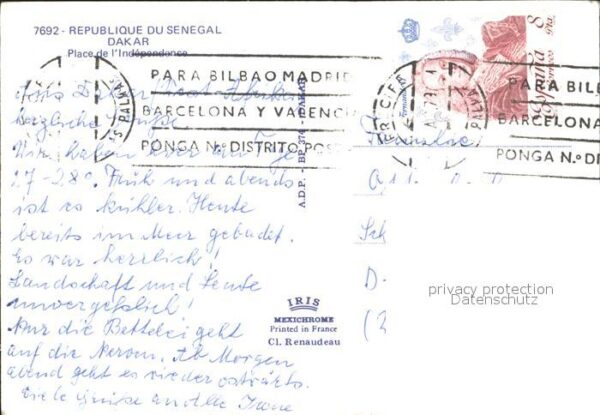 7692 - REPUBLIQUE DU SENEGAL
DAKAR
Place de l'Indépendance
PARA BILBAO MADRID
BARCELONA Y VALENC
PONGA N.º DISTRITO POST
PARA BIL
BARCELONA
PONGA N.º DI
Correos
8
Pta
herzliche Grüße
Wir haben hier am Tage
27-28° Früh und abends
ist es kühler. Heute
bereits im Meer gebadet.
Es war herrlich!
Landschaft und Leute
unvergeßlich!
Nur die Bettelei geht
auf die Nerven. Ab Morgen
abend geht es wieder ostwärts.
Viele Grüße an Alle Irene
A.D.P. - BP
DAKAR
IRIS
MEXICHROME
Printed in France
Cl. Renaudeau
privacy protection
Datenschutz